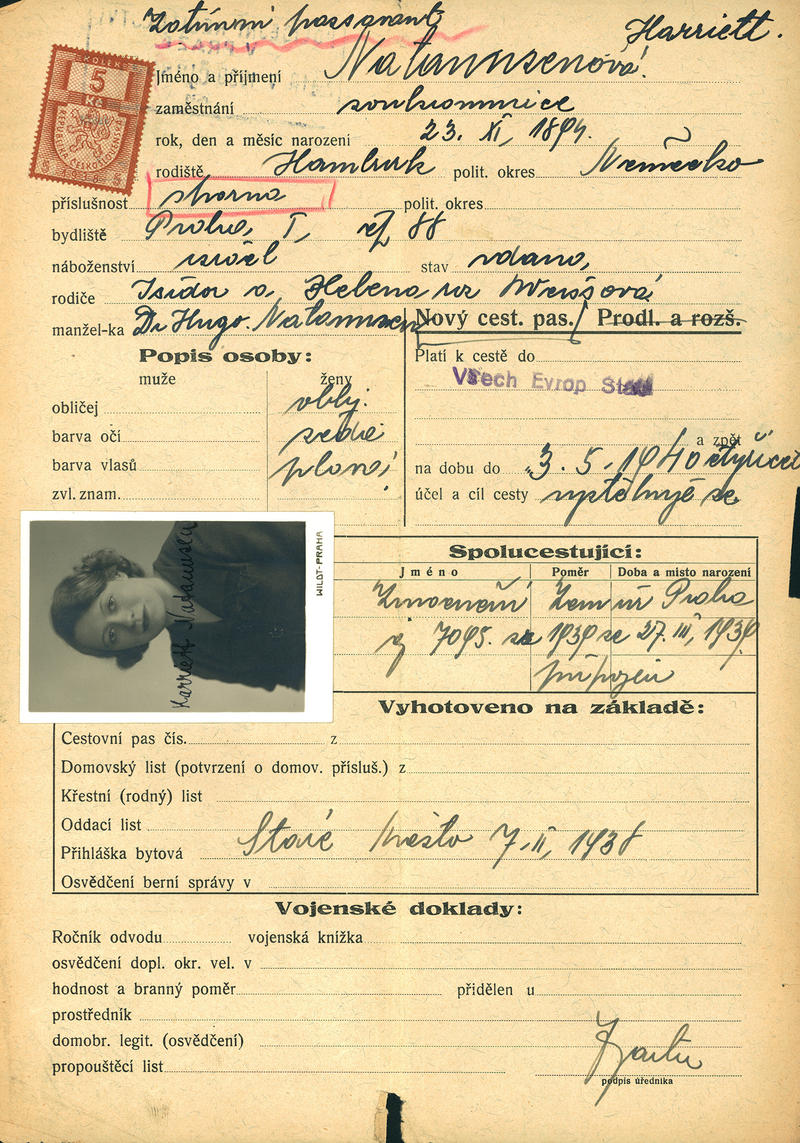 Harriett.
Jméno a příjmení Natanusenová
KOLEK
5
Kč
REPUBLIKA ČESKOSLOVENSKÁ
zaměstnání soukromnice
rok, den a měsíc narození 23. XI, 1894.
rodiště Hamburk polit. okres Německo
příslušnost polit. okres
bydliště Praha, I, 88
náboženství stav vdaná,
rodiče Isidor a Helena roz Weissová
manžel-ka Dr Hugo. Natanusen
Nový cest. pas. Prodl. a rozš.
Popis osoby:
muže ženy
Platí k cestě do
Všech Evrop
obličej obly.
barva očí šedé
barva vlasů plavá
zvl. znam.
a zpět
na dobu do 3. 5. 1940
účel a cíl cesty
WILDT-PRAHA
Harriett Natanusen
Spolucestující:
Jméno Poměr Doba a místo narození
Zmocnění Zem úř Praha
čj 7095. 1939 ze 27. III, 1939
připojen
Vyhotoveno na základě:
Cestovní pas čís. z
Domovský list (potvrzení o domov. přísluš.) z
Křestní (rodný) list
Oddací list
Přihláška bytová Staré Město 7, II, 1938
Osvědčení berní správy v
Vojenské doklady:
Ročník odvodu vojenská knížka
osvědčení dopl. okr. vel. v
hodnost a branný poměr přidělen u
prostředník
domobr. legit. (osvědčení)
propouštěcí list
podpis úředníka